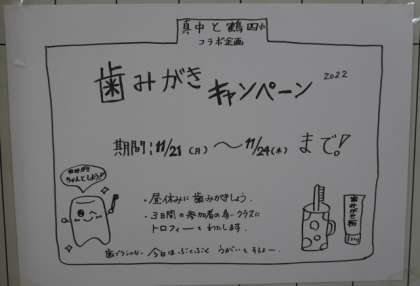 真中と鶴四小
コラボ企画
歯みがき
キャンペーン 2022
期間:11/21(月)〜11/24(木)まで!
歯みがき
ちゃんとしよう♪
・昼休みに歯みがきしよう.
・3日間の参加者の多いクラスに
トロフィーをわたします.
歯ブラシのない 今日はぶくぶく うがいをするよー
歯みがき粉